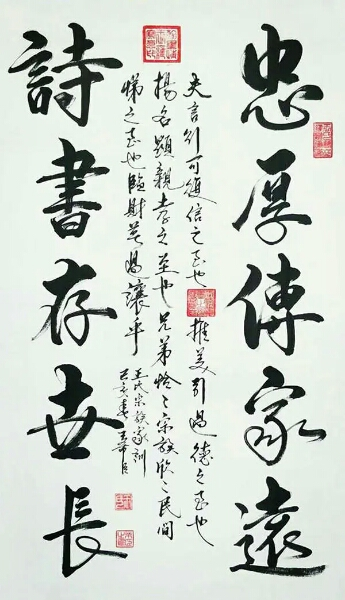 忠厚傳家遠
夫言行可復信之至也推美引過德之至也
揚名顯親孝之至也兄弟怡々宗族欣々民間
悌之至也臨財莫過讓乎
王氏宗族家訓
己亥春
詩書存世長